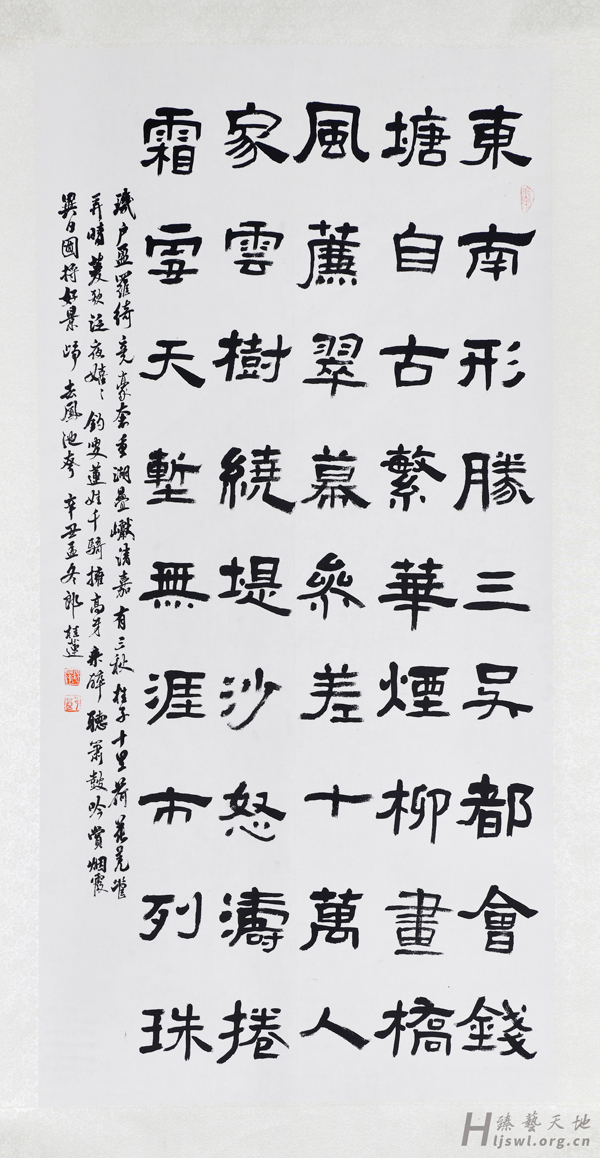 東南形勝三吳都會錢
塘自古繁華煙柳畫橋
風簾翠幕參差十萬人
家雲樹繞堤沙怒濤捲
霜雪天塹無涯市列珠
璣户盈羅綺竞豪奢重湖疊巘清嘉有三秋桂子十里荷花羌管
弄晴菱歌泛夜嬉〻釣叟蓮娃千騎擁高牙乘醉聽簫鼓吟賞烟霞
異日圖將好景歸去鳳池夸辛丑孟冬郎桂蓮
臻藝天地
Hljswl.org.cn